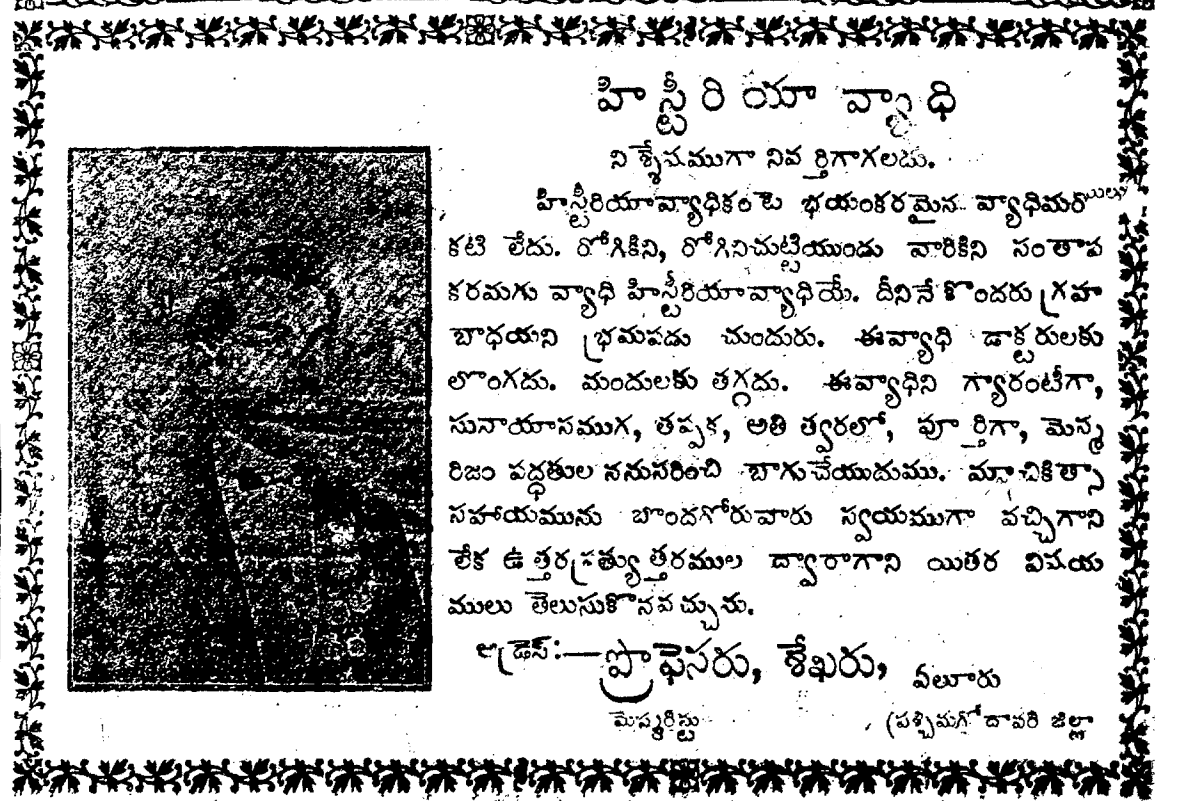 హిస్టీరియా వ్యాధి
నిశ్శేషముగా నివర్తిగాగలదు.
హిస్టీరియావ్యాధికంటె భయంకరమైన వ్యాధిమరి
కటి లేదు. రోగికిని, రోగినిచుట్టియుండు వారికిని సంతాప
కరమగు వ్యాధి హిస్టీరియావ్యాధియే. దీనినే కొందరు గ్రహ
బాధయని భ్రమపడు చుందురు. ఈవ్యాధి డాక్టరులకు
లొంగదు. మందులకు తగ్గదు. ఈవ్యాధిని గ్యారంటీగా,
సునాయాసముగ, తప్పక, అతి త్వరలో, పూర్తిగా, మెస్మ
రిజం పద్ధతుల ననుసరించి బాగుచేయుదుము. మా చికిత్సా
సహాయమును బొందగోరువారు స్వయముగా వచ్చిగాని
లేక ఉత్తరప్రత్యుత్తరముల ద్వారాగాని యితర విషయ
ములు తెలుసుకొనవచ్చును.
అడ్రెస్:—ప్రొఫెసరు, శేఖరు, ఏలూరు
మెస్మరిస్టు (పశ్చిమగోదావరి జిల్లా